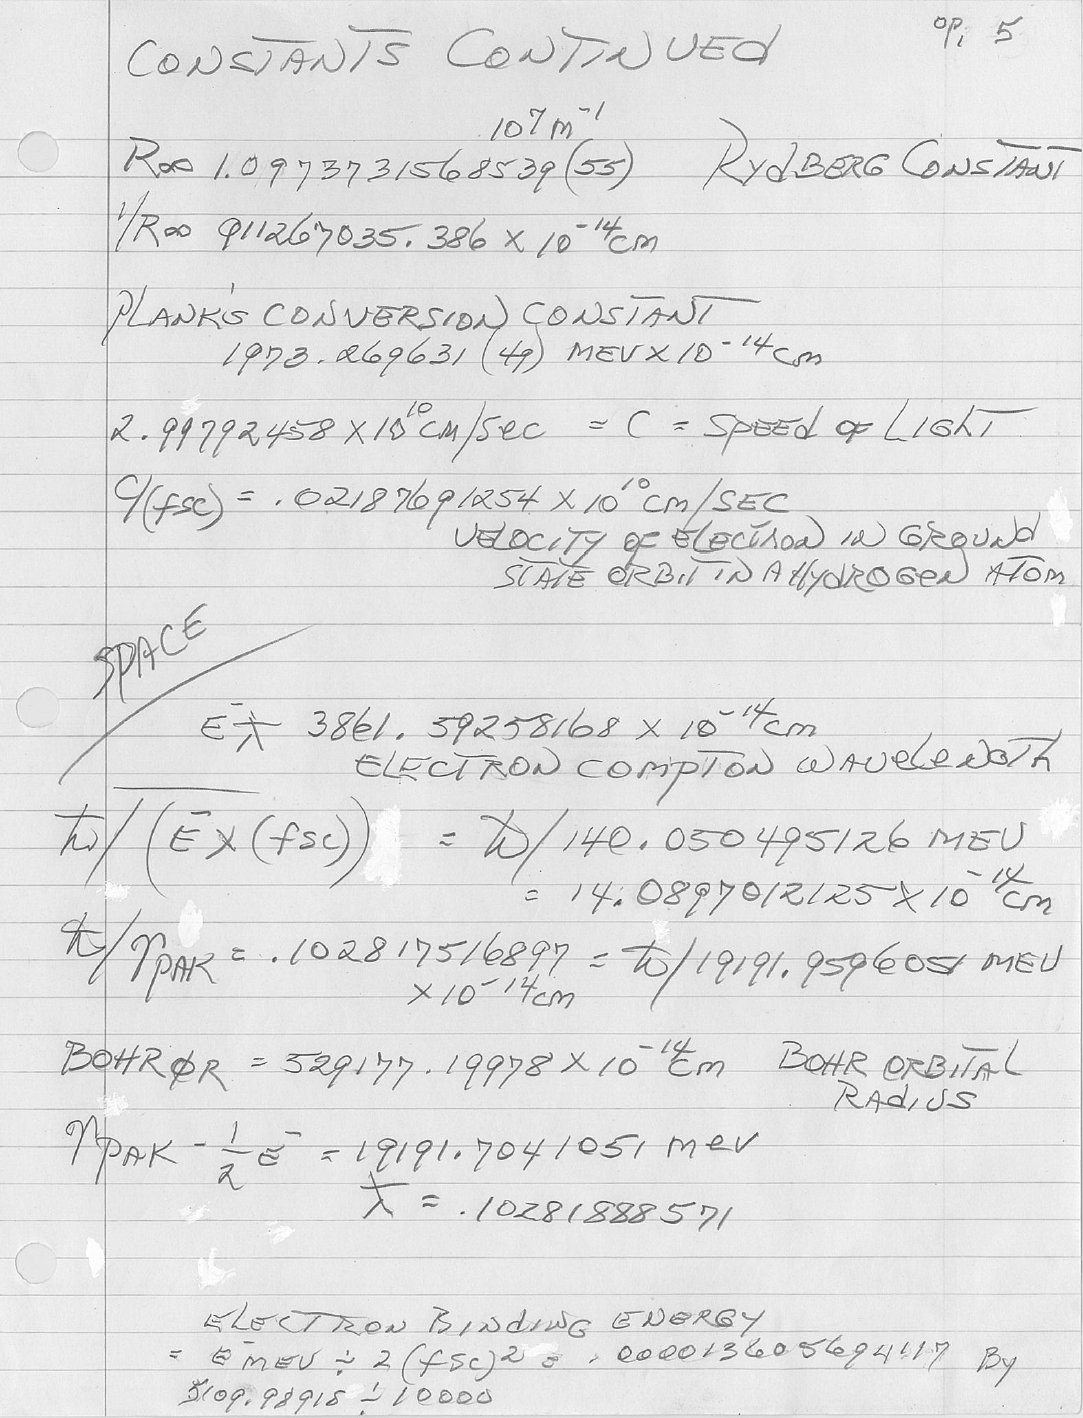 op. 5
CONSTANTS CONTINUED
10⁷ m⁻¹
R∞ 1.0973731568539(55) RYdBERG CONSTANT
1/R∞ 911267035.386 × 10⁻¹⁴cm
PLANK'S CONVERSION CONSTANT
1973.269631 (49) MEV × 10⁻¹⁴cm
2.99792458 × 10¹⁰ cm/sec = C = SPEEd OF LIGHT
C/(fsc) = .02187691254 × 10¹⁰ cm/SEC
VELOCITY OF ELECTRON IN GROUNd
STATE ORBIT IN A HYdROGEN ATOM
SPACE
E⁻ƛ 3861.59258168 × 10⁻¹⁴cm
ELECTRON COMPTON WAVELENGTH
ħ/(E⁻ × (fsc)) = ħ/140.050495126 MEV
= 14.0897012125 × 10⁻¹⁴cm
ħ/ηPAK = .102817516897 = ħ/19191.9596051 MEV
× 10⁻¹⁴cm
BOHR ØR = 529177.19978 × 10⁻¹⁴cm BOHR ORBITAL
RADIUS
ηPAK - 1/2 E⁻ = 19191.7041051 mev
ƛ = .10281888571
ELECTRON BINdING ENERGY
= E⁻MEV ÷ 2(fsc)² = .000013605694117 By
5109.98918 ÷ 10000